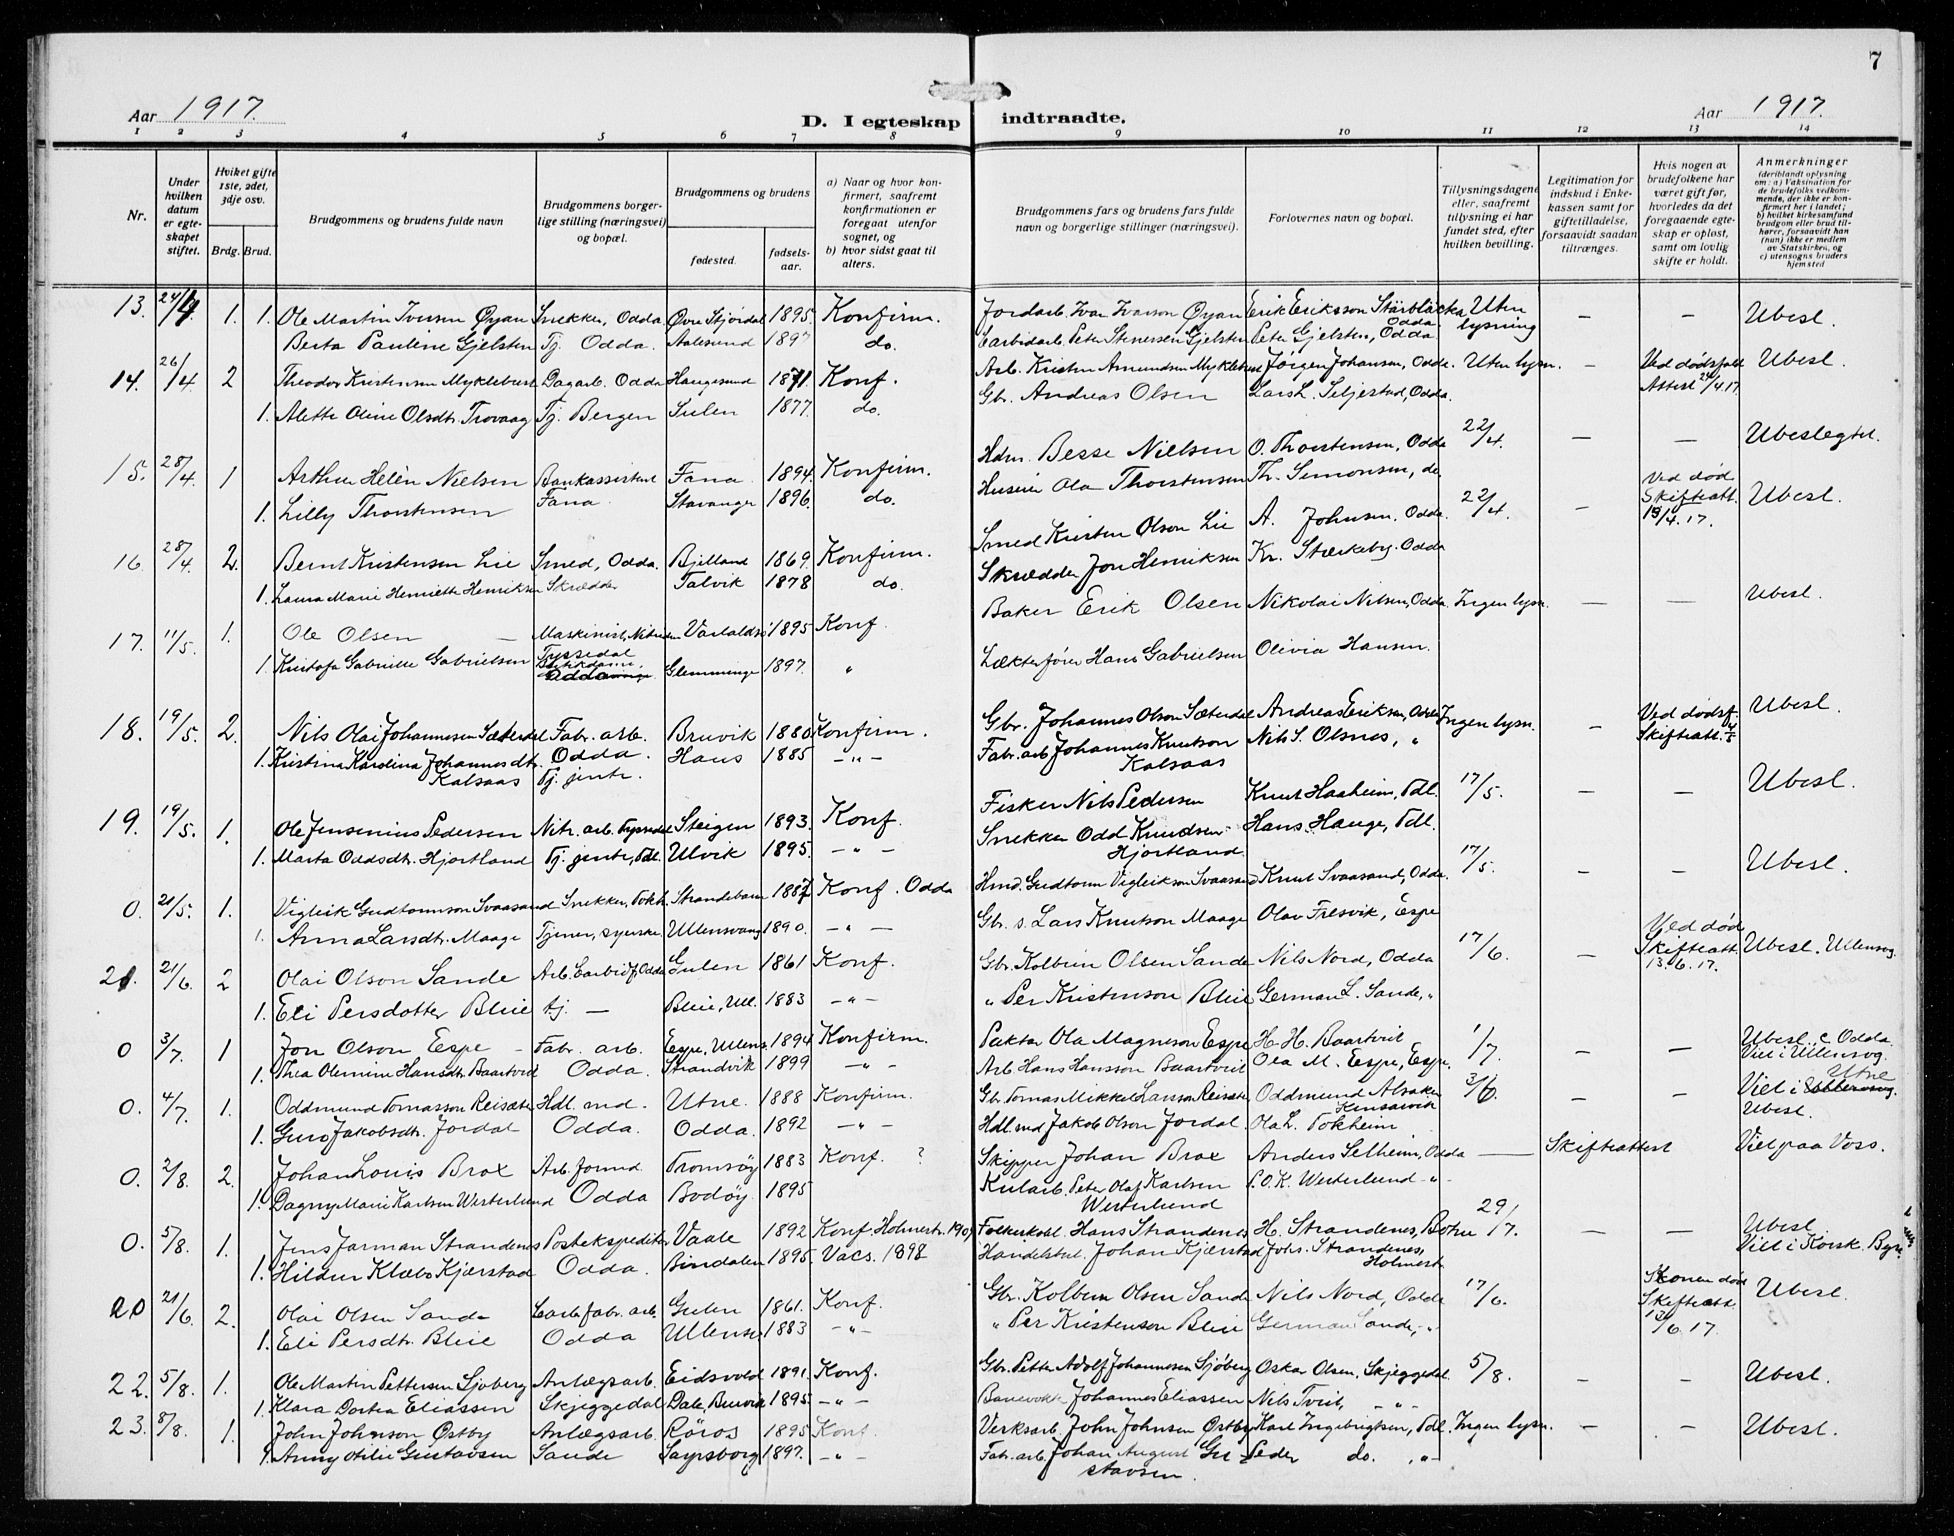 7
Aar 1917.
D. I egteskap indtraadte.
Aar 1917.
1 2 3 4 5 6 7 8 9 10 11 12 13 14
Nr.
Under hvilken datum er egteskapet stiftet.
Hviket gifte 1ste, 2det, 3dje osv.
Brdg. Brud.
Brudgommens og brudens fulde navn
Brudgommens borgerlige stilling (næringsvei) og bopæl.
Brudgommens og brudens
fødested.
fødselsaar.
a) Naar og hvor konfirmert, saafremt konfirmationen er foregaat utenfor sognet, og
b) hvor sidst gaat til alters.
Brudgommens fars og brudens fars fulde navn og borgerlige stillinger (næringsvei).
Forlovernes navn og bopæl.
Tillysningsdagene eller, saafremt tillysning ei har fundet sted, efter hvilken bevilling.
Legitimation for indskud i Enkekassen samt for giftetilladelse, forsaavidt saadan tiltrænges.
Hvis nogen av brudefolkene har været gift før, hvorledes da det foregaaende egteskap er opløst, samt om lovlig skifte er holdt.
Anmerkninger (deriblandt oplysning om: a) Vaksination for de brudefolks vedkommende, der ikke er konfirmert her i landet; b) hvilket kirkesamfund brudgom eller brud tilhører, forsaavidt han (hun) ikke er medlem av Statskirken, og c) utensogns bruders hjemsted
13. 24/4. 1. 1. Ole Martin Iversen Øyan Snekker, Odda Øvre Stjørdal 1895. Konfirm. Jordarb. Ivar Ivarson Øyan Erik Eriksson Odda Uten lysning – – Ubesl.
Berta Pauline Gjelsten Tj. Odda. Aalesund 1897 do. Carbidarb. Peter Stenersen Gjelsten Peter Gjelsten, Odda
14. 26/4 2 Theodor Kristensen Myklebust Dagarb. Odda Haugesund 1871. Konf. Arb. Kristen Amundsen Myklebust Jørgen Johansen, Odda. Uten lysn. – Ved dødsfald Attest 24/4 17. Ubesl.
1. Alette Oline Olsdtr. Trovaag Tj. Bergen Sulen 1877. do. Gbr. Andreas Olsen Lars L. Seljestad, Odda.
15. 28/4. 1 Arthur Helén Nielsen Bankassistent Fana 1894. Konfirm. Hdm. Besse Nielsen O. Thorstensen, Odda 22/4. – – Ubeslegtet.
1. Lilly Thorstensen Fana. Stavanger 1896. do. Huseier Ola Thorstensen Th. Simonsen, do
16. 28/4. 2. Bernt Kristensen Lie Smed, Odda. Bjelland 1869. Konfirm. Smed Kristen Olson Lie A. Johnsen, Odda. 22/4. – Ved død Skifteatt. 19/4. 17. Ubesl.
1. Laura Marie Henriette Henriksen Skrædder Talvik 1878 do. Skrædder Jon Henriksen Kr. Stærkeby. Odda
17. 11/5. 1. Ole Olsen – Maskinist, Tyssedal 1895 Konf. Baker Erik Olsen Nikolai Nilsen, Odda. Ingen lysn. – – Ubesl.
1. Kristofa Gabrielle Gabrielsen Glemminge 1897. " Lækterfører Hans Gabrielsen Olivia Hansen.
18. 19/5. 2. Nils Olai Johannesen Sæterdal Fabr. arb. Bruvik 1880 Konfirm. Gbr. Johannes Olson Sæterdal Andreas Eriksen, Odda Ingen lysn. – Ved dødsf. Skifteatt. Ubesl.
1. Kristina Karolina Johannesdtr. Kalsaas Odda. Tj. jente. Haus 1885 – " – Fabr. arb. Johannes Knutson Kalsaas Nils S. Olsnes, "
19. 19/5. 1. Ole Jensenius Pedersen Nitr. arb. Tyssedal Steigen 1893. Konf. Fisker Nils Pedersen Knut Haaheim, Tdl. 17/5. – – Ubesl.
1. Marta Oddsdtr. Hjortland Tj. jente, Tdl. Ulvik 1895. – " – Snekker Odd Knudsen Hjortland. Hans Hauge, Tdl.
0. 21/5. 1. Vigleik Gudtormson Svaasand Snekker, Tokh. Strandebarm 1887 Konf. Odda Hmd. Gudtorm Vigleikson Svaasand Knut Svaasand, Odda. 17/5. – – Ubesl.
1. Anna Larsdtr. Maage Tjener, syerske Ullensvang 1890. – " – Gbr. s. Lars Knutson Maage Olav Fresvik, Espe
21. 21/6. 2 Olai Olson Sande Arb. Carbidf. Odda Gulen 1861 Konf. Gbr. Kolbein Olsen Sande Nils Nord, Odda 17/6. – Ved død Skifteatt. 13.6.17. Ubesl. Ullensvg.
1. Eli Persdotter Bleie Tj. – Bleie, Ull. 1883 – " – " Per Kristenson Bleie German L. Sande, "
0 3/7. 1 Jon Olson Espe – Fabr. arb. Espe, Ullens. 1894 Konfirm. Paktar Ola Magneson Espe H. H. Baartvit 1/7. – – Ubesl. c Odda. Viet i Ullensvg.
1. Thea Olemine Hansdtr. Baartveit Odda. Strandvik 1899 – " – Arb. Hans Hansson Baartveit Ola M. Espe, Espe.
0. 4/7. 1. Oddmund Tomasson Reisæter Hdl. md. Utne. 1888 Konfirm. Gbr. Tomas Mikkel Larsson Reisæter Oddmund Alsaker Kinsarvik 3/6. – – Viet i Utne Ubesl.
1. Guro Jakobsdtr. Jordal Odda. Odda. 1892 – " – Hdl. md Jakob Olson Jordal Ola L. Tokheim
0. 2/8. 2. Johan Louis Brox Arb. formd. Tromsøy 1883 Konf. ? Skipper Johan Brox Anders Selheim, Odda – Skifteattest Viet paa Voss.
1. Dagny Marie Karlsen Westerlund Odda Bodøy 1895 Kularb. Peter Olaf Karlsen Westerlund P. O. K. Westerlund – " –
0. 5/8. 1. Jens Jarman Strandenes Postekspeditør Vaale 1892 Konf. Holmestr. 1907 Folkeskol. Hans Strandenes H. Strandenes, Botne 29/7. – – Ubesl. Viet i Korsk. Byn
1. Hildur Klæbo Kjærstad Odda. Bindalen 1895 Vacs. 1898 Handelsbet. Johan Kjærstad Johs. Strandenes, Holmestr.
20 21/6. 2. Olai Olsen Sande Carb. fabr. arb. Gulen 1861. Konf. Gbr. Kolbein Olsen Sande Nils Nord, Odda 17/6. – Konen død Skifteatt. 13/6. 17. Ubesl.
1. Eli Persdtr. Bleie Odda Ullensv. 1883 – " – " Per Kristenson Bleie German Sande, – " –
22. 5/8. 1. Ole Martin Pettersen Sjøberg Anlægsarb. Eidsvold 1891. Konf. Gbr. Petter Adolf Johannesen Sjøberg Oskar Olsen, Skjeggedal. 5/8. – – Ubesl.
1. Klara Dortea Eliassen Skjeggedal Dale, Bruvik 1895. – " – Banevokt. Johannes Eliassen Nils Tveit, – " –
23. 8/8. 1. John Johnson Østby Anlægsarb. Røros 1895 Konf. Verksarb. John Johnsen Østby Karl Ingebrigtsen, Tdl. Ingen lysn. – – Ubesl.
1. Anny Otilie Gustavsen Sande Sarpsborg 1897. – " – Fabr. arb. Johan August Gustavsen. Peder do. " –